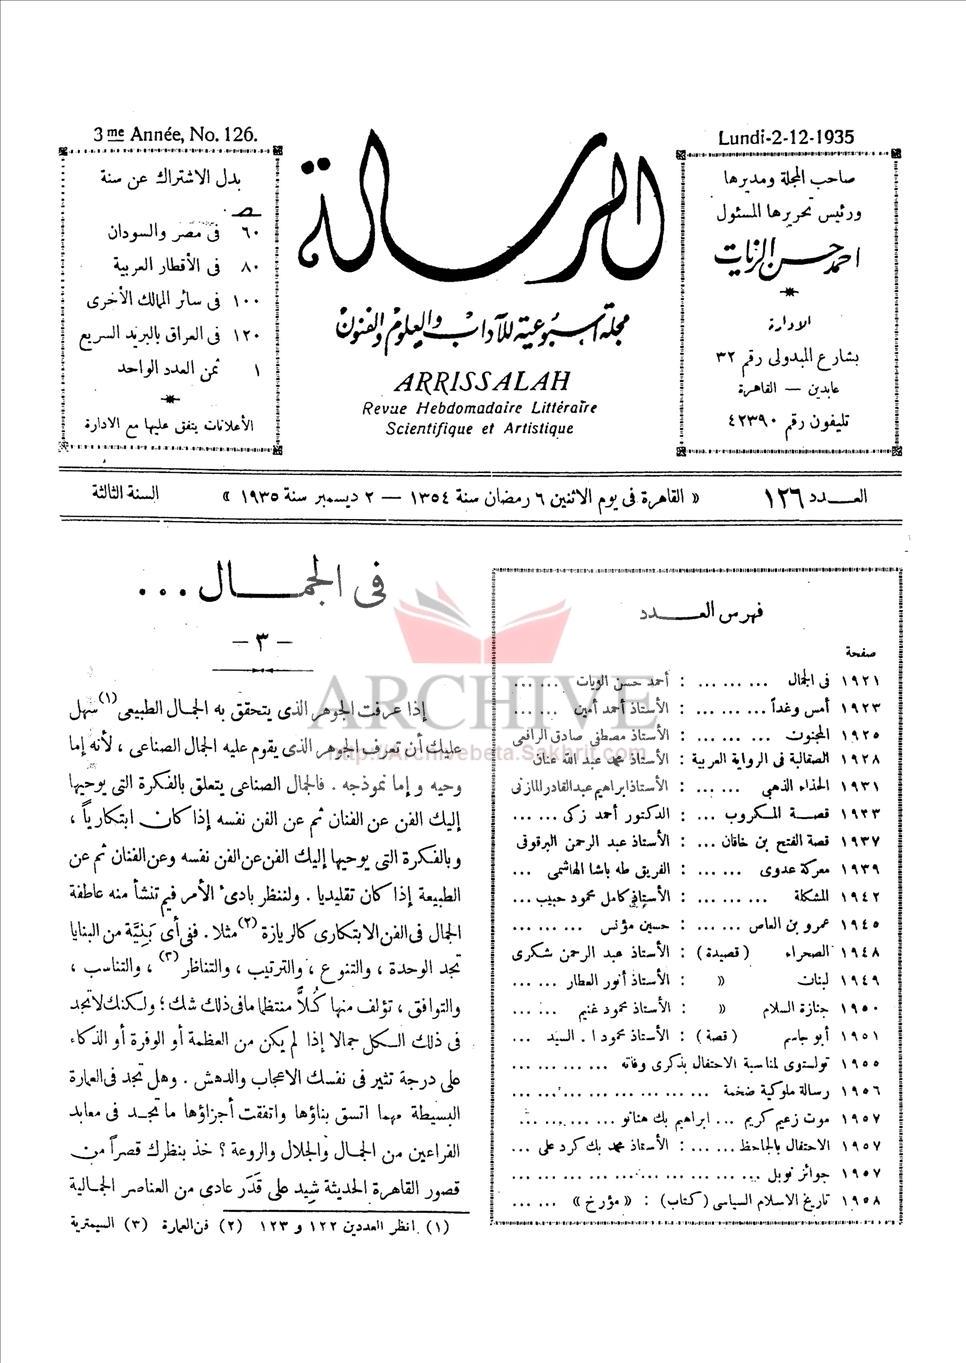 3me Année, No. 126.
Lundi-2-12-1935
صاحب المجلة ومديرها
ورئيس تحريرها المسئول
احمد حسن الزيات
الادارة
بشارع المبدولى رقم ٣٢
عابدين — القاهرة
تليفون رقم ٤٢٣٩٠
الرسالة
مجلة أسبوعية للآداب والعلوم والفنون
ARRISSALAH
Revue Hebdomadaire Littéraire
Scientifique et Artistique
بدل الاشتراك عن سنة
ص
٦٠ فى مصر والسودان
٨٠ فى الأقطار العربية
١٠٠ فى سائر الممالك الأخرى
١٢٠ فى العراق بالبريد السريع
١ ثمن العدد الواحد
الأعلانات يتفق عليها مع الادارة
العـــدد ١٢٦
« القاهرة فى يوم الاثنين ٦ رمضان سنة ١٣٥٤ — ٢ ديسمبر سنة ١٩٣٥ »
السنة الثالثة
فهرس العـــدد
صفحة
١٩٢١ فى الجمال ... ... ... : أحمد حسن الزيات ... ...
١٩٢٣ أمس وغداً ... ... ... : الأستاذ أحمد أمين ... ...
١٩٢٥ المجنون ... ... ... : الأستاذ مصطفى صادق الرافعى
١٩٢٨ الصقالبة فى الرواية العربية : الأستاذ محمد عبد الله عنان
١٩٣١ الحذاء الذهبى ... ... : الأستاذ ابراهيم عبد القادر المازنى
١٩٣٣ قصـــة المـكروب ... : الدكتور أحمد زكى ... ...
١٩٣٧ قصة الفتح بن خاقان ... : الأستاذ عبد الرحمن البرقوقى
١٩٣٩ معركة عدوى ... ... : الفريق طه باشا الهاشمى ...
١٩٤٢ المشكلة ... ... ... : الأستاذ كامل محمود حبيب ...
١٩٤٥ عمرو بن العاص ... ... : حسين مؤنس ... ... ...
١٩٤٨ الصحراء ( قصيدة ) : الأستاذ عبد الرحمن شكرى
١٩٤٩ لبنان « : الأستاذ أنور العطار ... ...
١٩٥٠ جنازة السلام « : الأستاذ محمود غنيم ... ...
١٩٥١ أبو جاسم ( قصة ) : الأستاذ محمود ا . السيد ...
١٩٥٥ تولستوى لمناسبة الاحتفال بذكرى وفاته ... ... ... ...
١٩٥٦ رسالة ملوكية ضخمة ... ... ... ... ... ... ...
١٩٥٧ موت زعيم كريم ... ابراهيم بك هنانو ... ... ... ...
١٩٥٧ الاحتفال بالجاحظ ... ... : الأستاذ محمد بك كرد على ...
١٩٥٧ جوائز نوبل ... ... ... ... ... ... ... ... ...
١٩٥٨ تاريخ الاسلام السياسى ( كتاب ) : « مؤرخ » ... ...
فى الجمـــــال ...
— ٣ —
إذا عرفت الجوهر الذى يتحقق به الجمال الطبيعى(١) سهل
عليك أن تعرف الجوهر الذى يقوم عليه الجمال الصناعى ، لأنه إما
وحيه و إما نموذجه . فالجمال الصناعى يتعلق بالفكرة التى يوحيها
إليك الفن عن الفنان ثم عن الفن نفسه إذا كان ابتكارياً ،
وبالفكرة التى يوحيها إليك الفن عن الفن نفسه وعن الفنان ثم عن
الطبيعة إذا كان تقليديا . ولننظر بادئ الأمر فيم تنشأ منه عاطفة
الجمال فى الفن الابتكارى كالريازة(٢) مثلا . ففى أى بَنِيَّة من البنايا
تجد الوحدة ، والتنوع ، والترتيب ، والتناظر(٣) ، والتناسب ،
والتوافق ، تؤلف منها كُلاًّ منتظما مافى ذلك شك ؛ ولكنك لاتجد
فى ذلك الـكل جمالا إذا لم يكن من العظمة أو الوفرة أو الذكاء
على درجة تثير فى نفسك الاعجاب والدهش . وهل تجد فى العمارة
البسيطة مهما اتسق بناؤها واتفقت أجزاؤها ما تجـد فى معابد
الفراعين من الجمال والجلال والروعة ؟ خذ بنظرك قصراً من
قصور القاهرة الحديثة شيد على قَدَر عادى من العناصر الجمالية
(١) انظر العددين ١٢٢ و ١٢٣ (٢) فن العمارة (٣) السيمترية
ARCHIVE
http://Archivebeta.Sakhrit.com